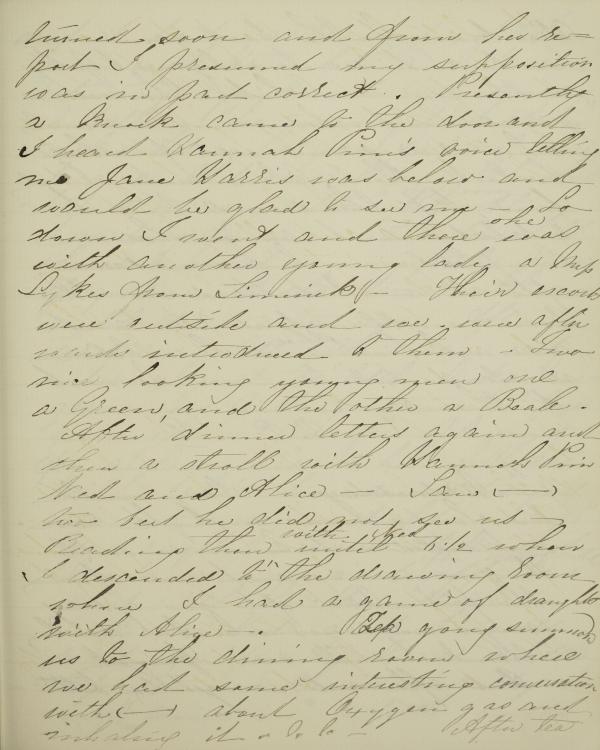 turned soon and from her re=
port I presumed my supposition
was in part correct. Presently
a knock came to the door and
I heard Hannah Pim's voice telling
me Jane Harris was below and
would be glad to see me — So
down I went and there she was
with another young lady a Miss
Sykes from Limerick — Their escorts
were outside and we were after
wards introduced to them — Two
nice looking young men one
a Green, and the other a Boale.
After dinner letters again and
then a stroll with Hannah Pim
Ned and Alice — Saw (—)
too but he did not see us —
Reading then with Ned until 6½ when
I descended to the drawing room
where I had a game of draughts
with Alice —. Tea gong summoned
us to the dining room where
we had some interesting conversation
with (—) about Oxygen gas and
inhaling it &c &c — After tea